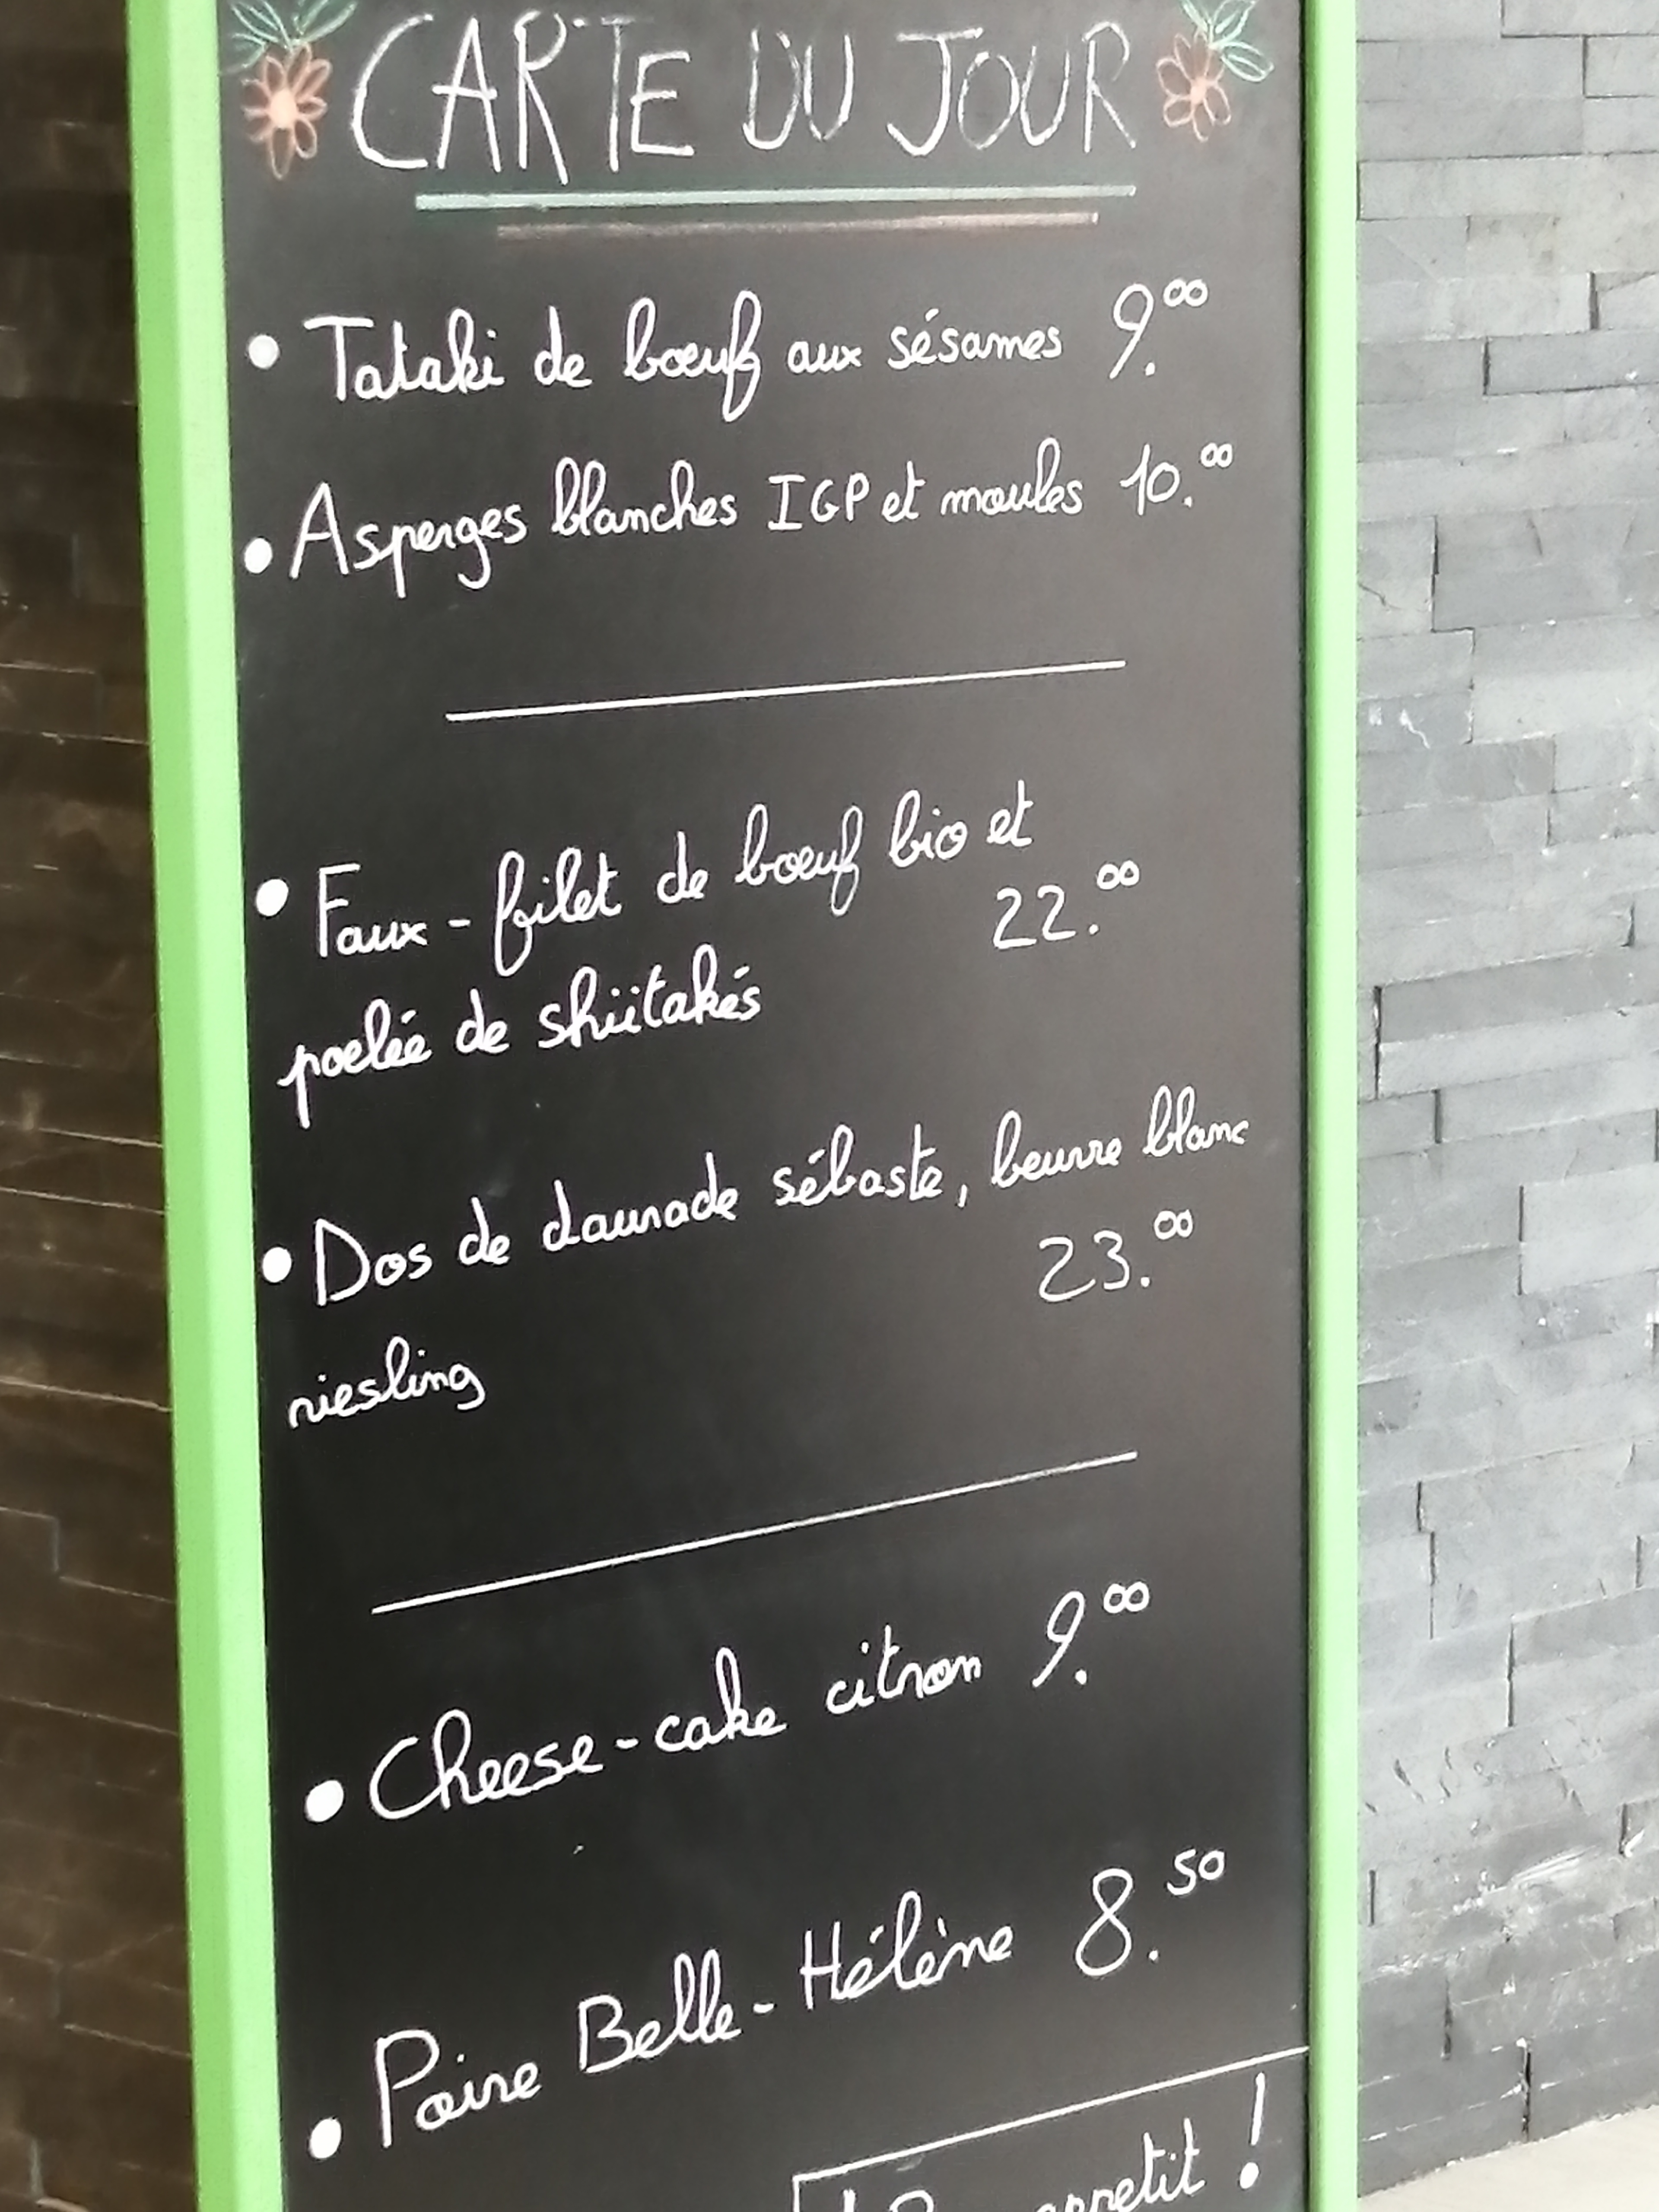 CARTE DU JOUR
• Tataki de bœuf aux sésames 9.00
• Asperges blanches IGP et moules 10.00
• Faux-filet de bœuf bio et
22.00
poelée de shiitakés
• Dos de daurade sébaste, beurre blanc
23.00
riesling
• Cheese-cake citron 9.00
• Poire Belle-Hélène 8.50
appetit !